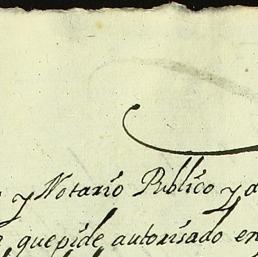 y Notario Publico y a
que pide autorisado en